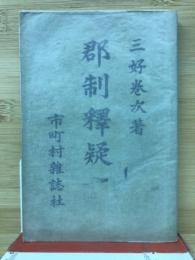 三好巻次著
郡制釋疑
市町村雑誌社